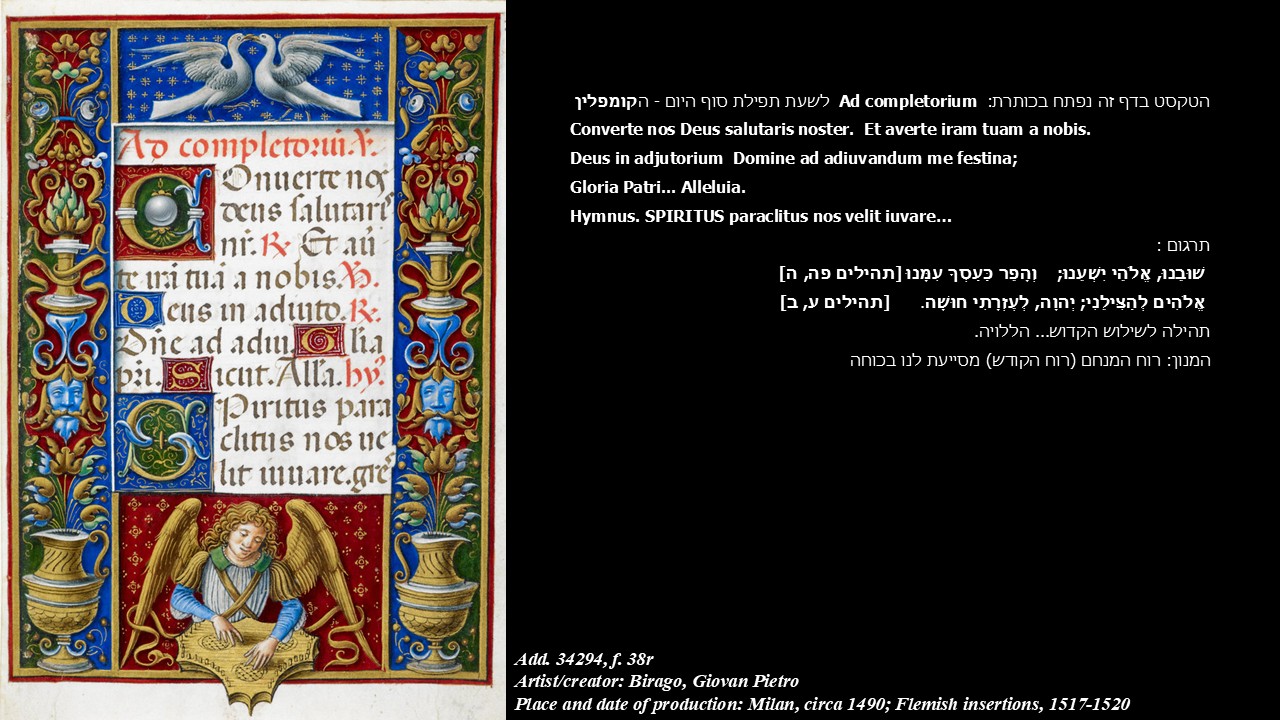 Ad completoruii.V.
Onuerte nos
deus salutaris
nr̄. R. Et auͥ
te irā tuā a nobis. V.
Deus in adiuto. R.
Dn̄e ad adiu. Glīa
pri. Sicut. Alla. hy.
SPiritus para
clitus nos ue
lit iuuare. gre
הטקסט בדף זה נפתח בכותרת: Ad completorium לשעת תפילת סוף היום - הקומפלין
Converte nos Deus salutaris noster. Et averte iram tuam a nobis.
Deus in adjutorium Domine ad adiuvandum me festina;
Gloria Patri... Alleluia.
Hymnus. SPIRITUS paraclitus nos velit iuvare...
תרגום :
שׁוּבֵנוּ, אֱלֹהֵי יִשְׁעֵנוּ; וְהָפֵר כַּעַסְךָ עִמָּנוּ [תהילים פה, ה]
אֱלֹהִים לְהַצִּילֵנִי; יְהוָה, לְעֶזְרָתִי חוּשָׁה. [תהילים ע, ב]
תהילה לשילוש הקדוש... הללויה.
המנון: רוח המנחם (רוח הקודש) מסייעת לנו בכוחה
Add. 34294, f. 38r
Artist/creator: Birago, Giovan Pietro
Place and date of production: Milan, circa 1490; Flemish insertions, 1517-1520